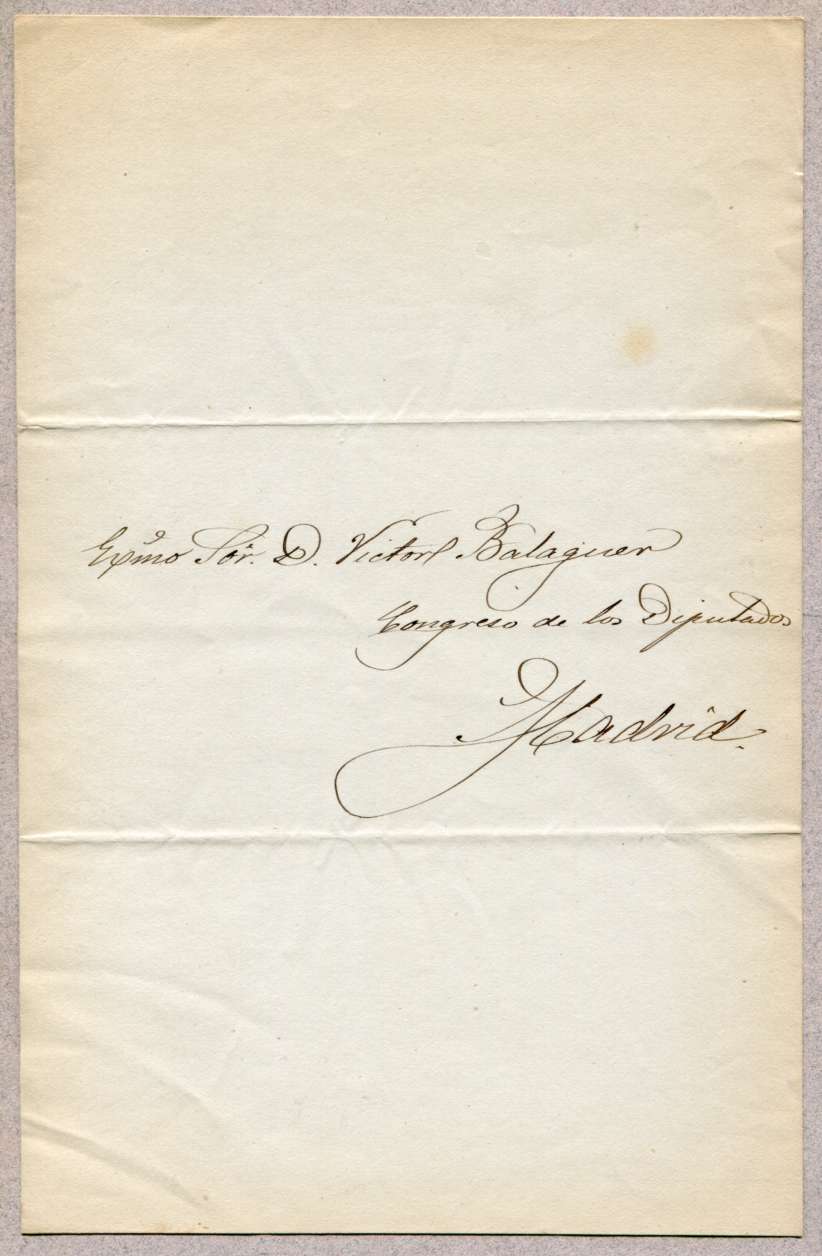 Exmo Sor. D. Victor Balaguer
Congreso de los Diputados
Madrid.